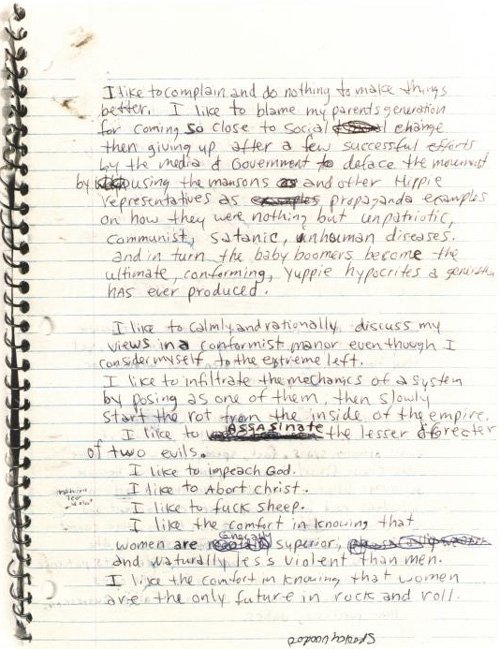 I like to complain and do nothing to make things
better. I like to blame my parents generation
for coming SO close to social change
then giving up after a few successful efforts
by the media & Government to deface the movement
by using the mansons and other Hippie
representatives as propaganda examples
on how they were nothing but unpatriotic,
communist, satanic, unhuman diseases.
and in turn the baby boomers became the
ultimate, conforming, yuppie hypocrites a generation
has ever produced.
I like to calmly and rationally discuss my
views in a conformist manor even though I
consider myself to the extreme left.
I like to infiltrate the mechanics of a system
by posing as one of them, then slowly
start the rot from the inside of the empire.
I like to ASSASinate the lesser & greater
of two evils.
I like to impeach God.
I like to Abort Christ.
I like to fuck sheep.
I like the comfort in knowing that
women are generally superior,
and naturally less violent than men.
I like the comfort in knowing that women
are the only future in rock and roll.